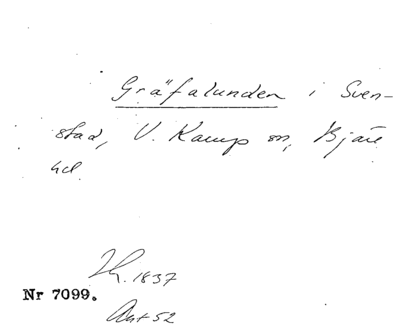 Gräfalunden i Sven-
stad, V. Karup sn, Bjäre
hd.
1837
Nr 7099.
Ant 52